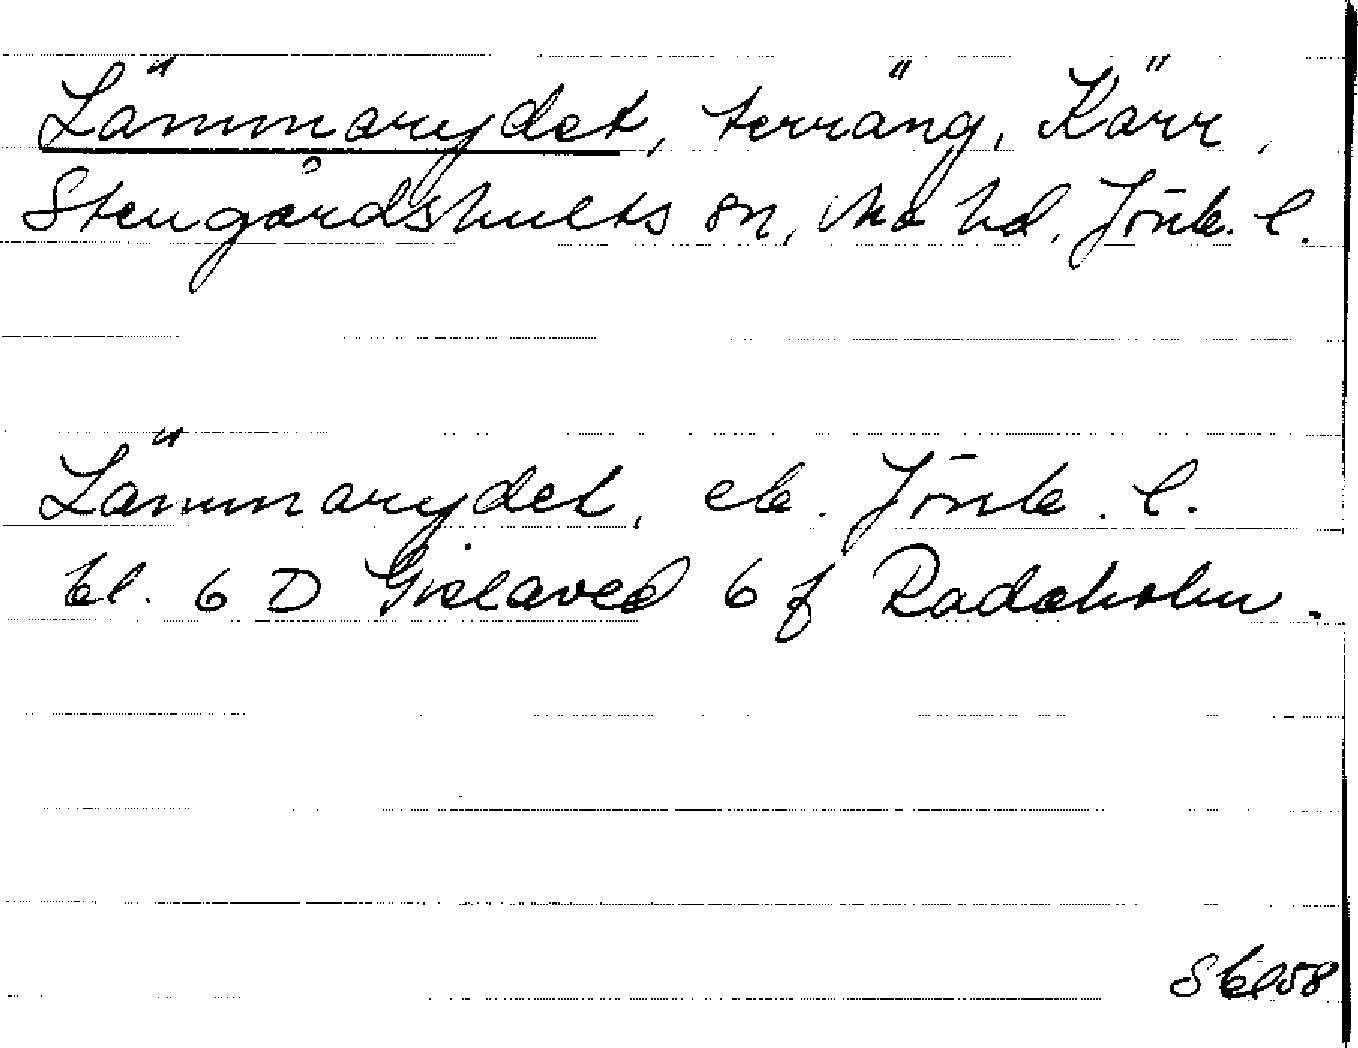 Lämmarydet, terräng, Kärr,
Stengårdshults sn, Mo hd, Jönk. l.
Lämmarydet, ek. Jönk. l.
bl. 6 D Gislaved 6 f Radaholm.